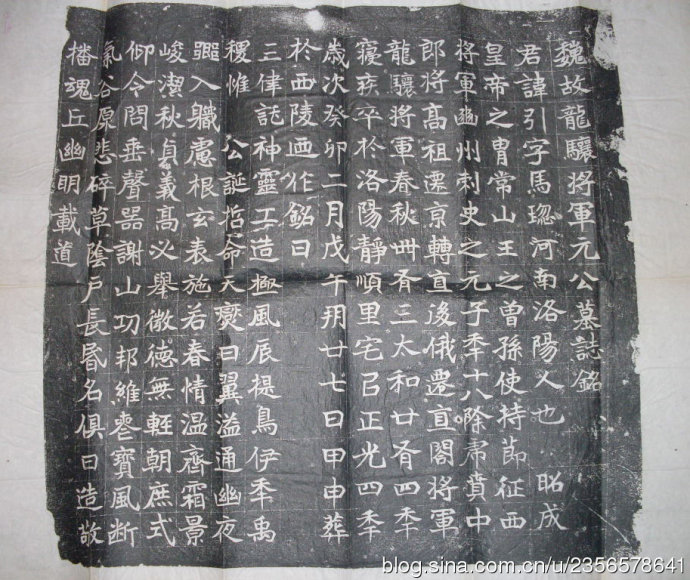 魏故龍驤將軍元公墓誌銘
君諱引字馬琡河南洛陽人也 昭成
皇帝之胄常山王之曾孫使持節征西
將軍幽州刺史之元子年十八除帝賁中
郎將高祖遷京轉直後俄遷直閤將軍
龍驤將軍春秋卌有三太和廿有四年
寢疾卒於洛陽靜順里宅以正光四年
歲次癸卯二月戊午朔廿七日甲申葬
於西陵迺作銘曰
三偉託神靈工造極風辰提鳥伊年禹
稷惟 公誕哲命天爕曰翼溢通幽夜
入職慮根玄表施若春情溫齊霜景
峻潔秋貞義高必舉微德無輕朝庶式
仰令問垂聲器謝山功邦維寶風断
氣谷原悲碎草蔭戶長昏名俱日造敬
播魂丘幽明載道
blog.sina.com.cn/u/2356578641